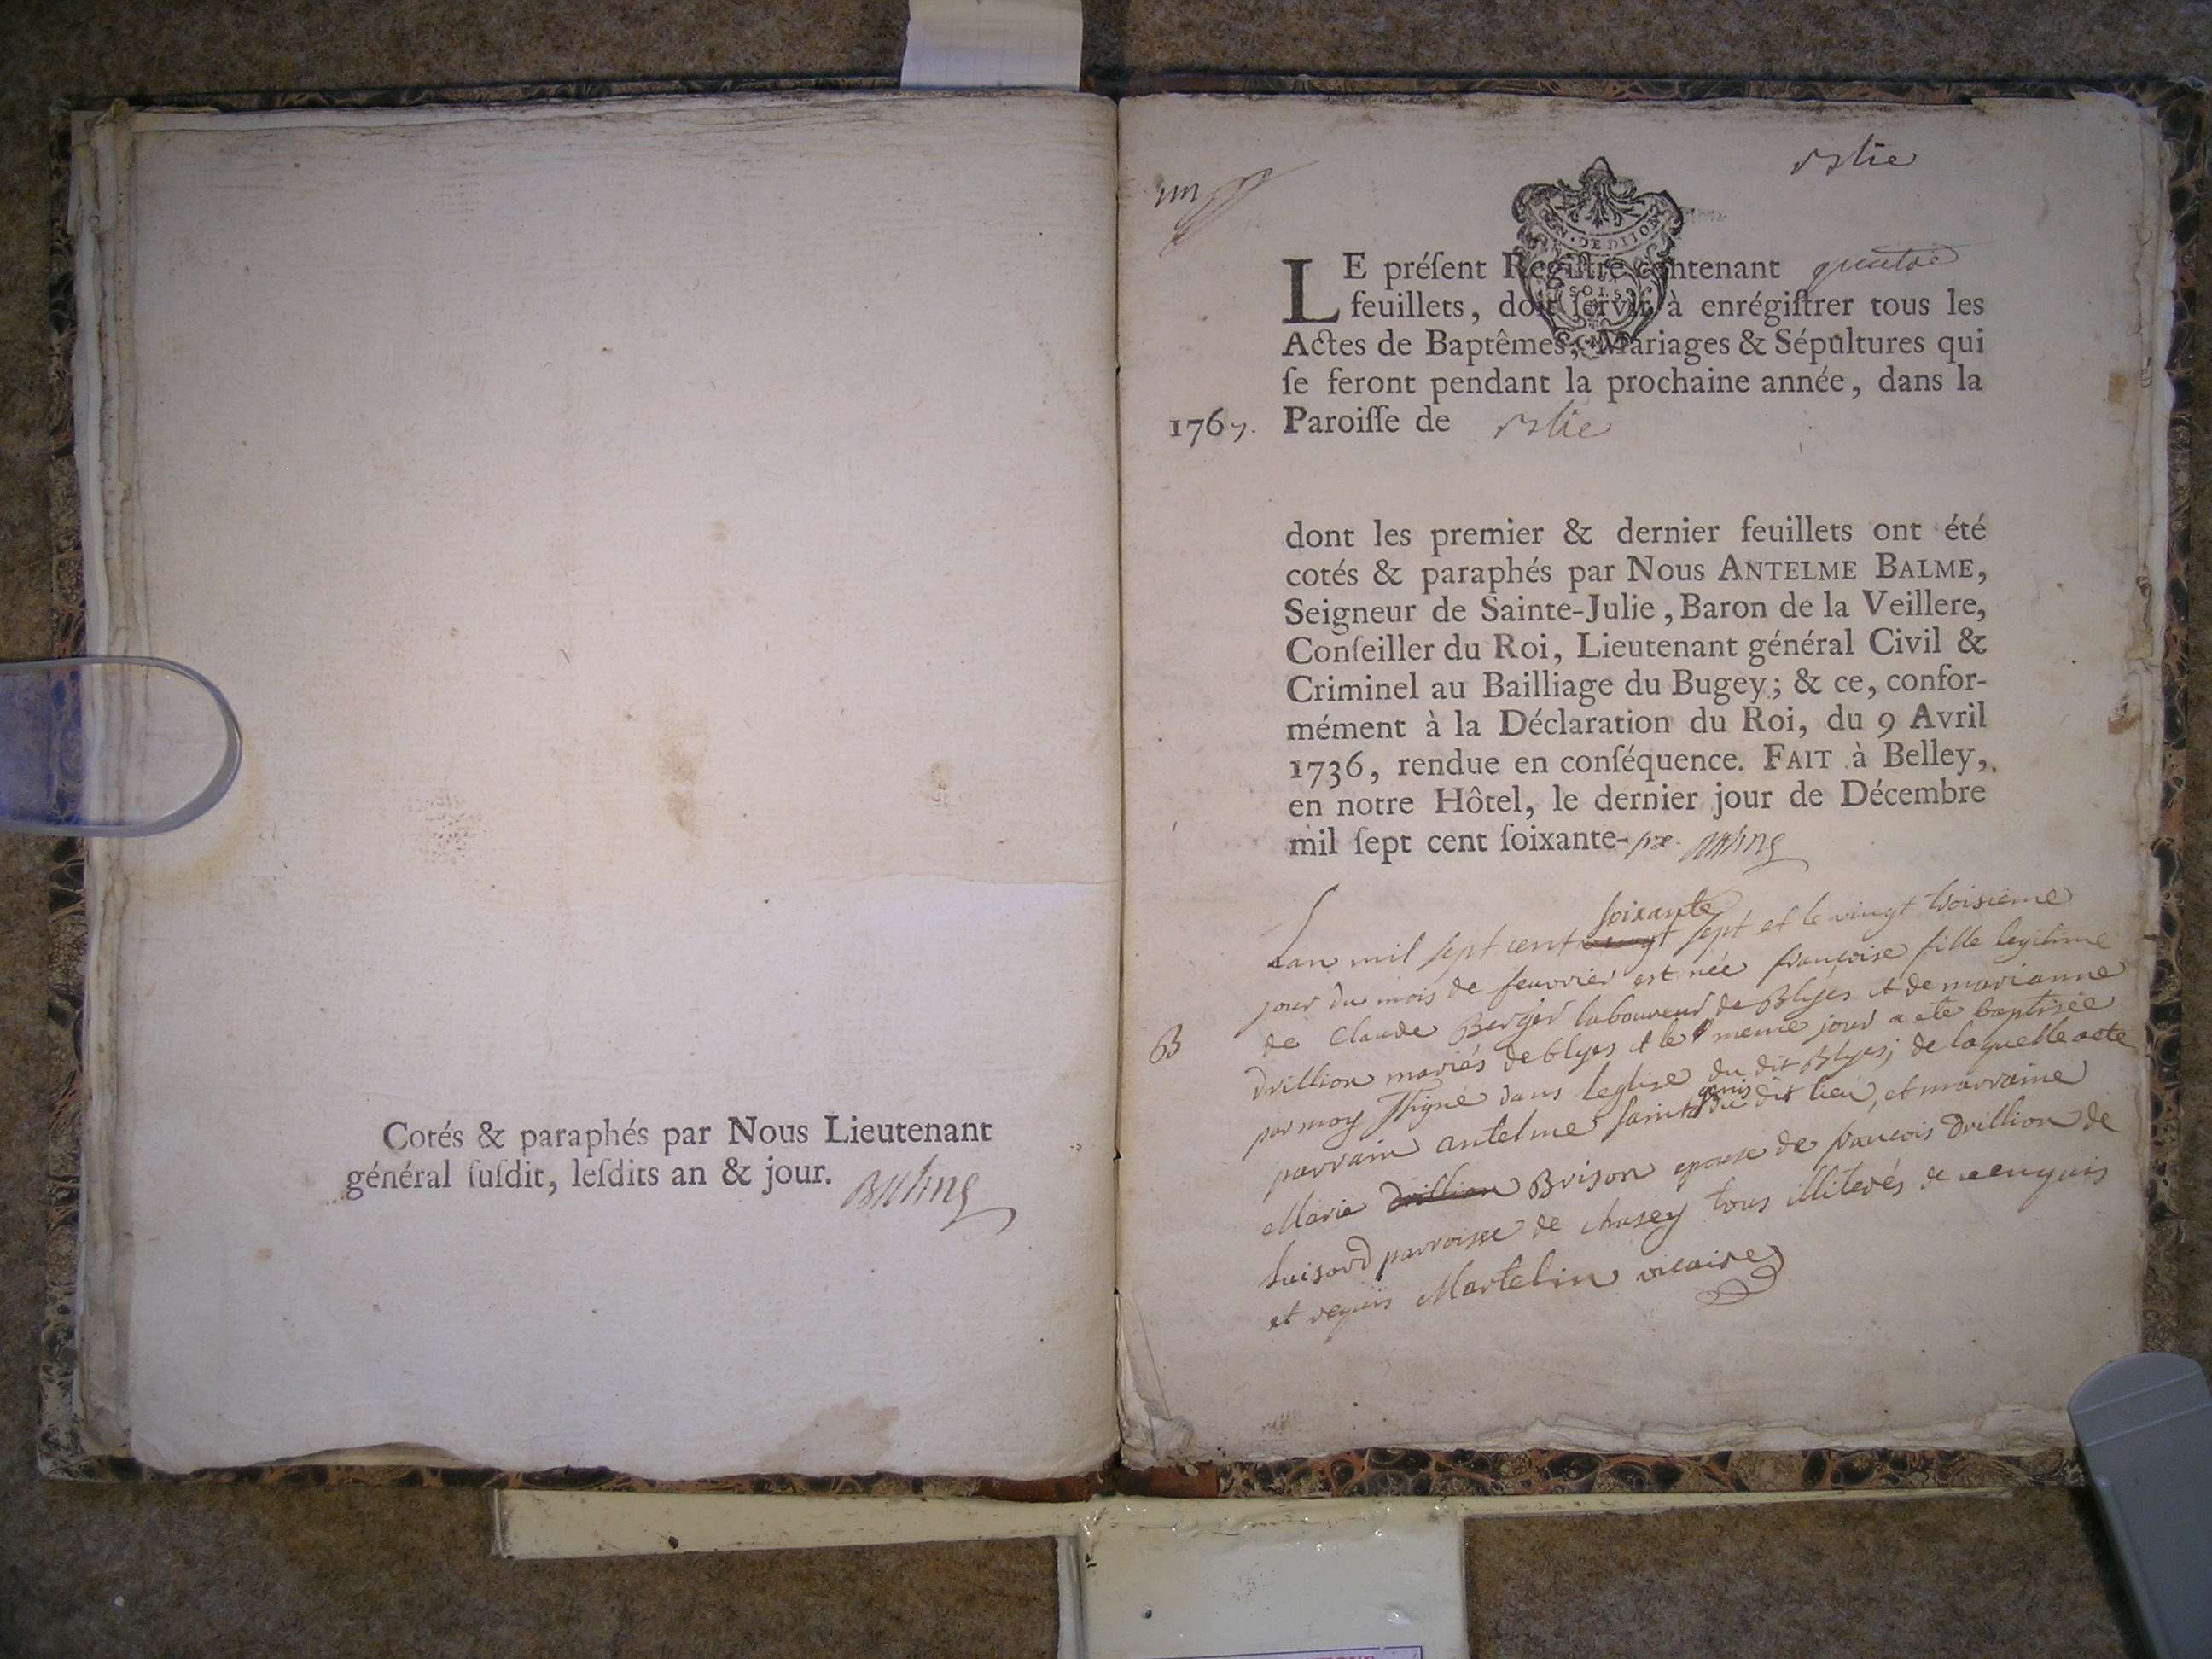 Cotés & paraphés par Nous Lieutenant
général ſuſdit, leſdits an & jour.
un
GEN. DE DIJON
SOLS
LE préſent Regiſtre contenant quatre
feuillets, doit ſervir à enrégiſtrer tous les
Actes de Baptêmes, Mariages & Sépultures qui
ſe feront pendant la prochaine année, dans la
1767. Paroiſſe de
dont les premier & dernier feuillets ont été
cotés & paraphés par Nous ANTELME BALME,
Seigneur de Sainte-Julie, Baron de la Veillere,
Conſeiller du Roi, Lieutenant général Civil &
Criminel au Bailliage du Bugey; & ce, confor-
mément à la Déclaration du Roi, du 9 Avril
1736, rendue en conſéquence. FAIT à Belley,
en notre Hôtel, le dernier jour de Décembre
mil ſept cent ſoixante-six.
soixante
Lan mil sept cent vingt sept et le vingt troisieme
jour du mois de feuvrier est née françoise fille legitime
de Claude Berger laboureur de Blyes et de marianne
B
drillion mariés de blyes et le meme jour a ete baptisée
par moy ssigné dans leglise du dit Blyes; de laquelle acte
genis
parrain antelme saint du dit lieu, et marraine
Marie drillion Brison epouse de francois drillion de
Luisard parroisse de chasey tous illiterés de ce enquis
et requis Martelin vicaire